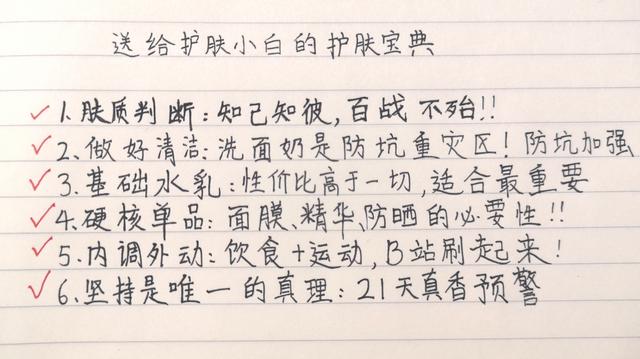 送给护肤小白的护肤宝典
✓1.肤质判断:知己知彼,百战不殆!!
✓2.做好清洁:洗面奶是防坑重灾区!防坑加强
✓3.基础水乳:性价比高于一切,适合最重要
✓4.硬核单品:面膜、精华、防晒的必要性!!
✓5.内调外动:饮食+运动,B站刷起来!
✓6.坚持是唯一的真理:21天真香预警